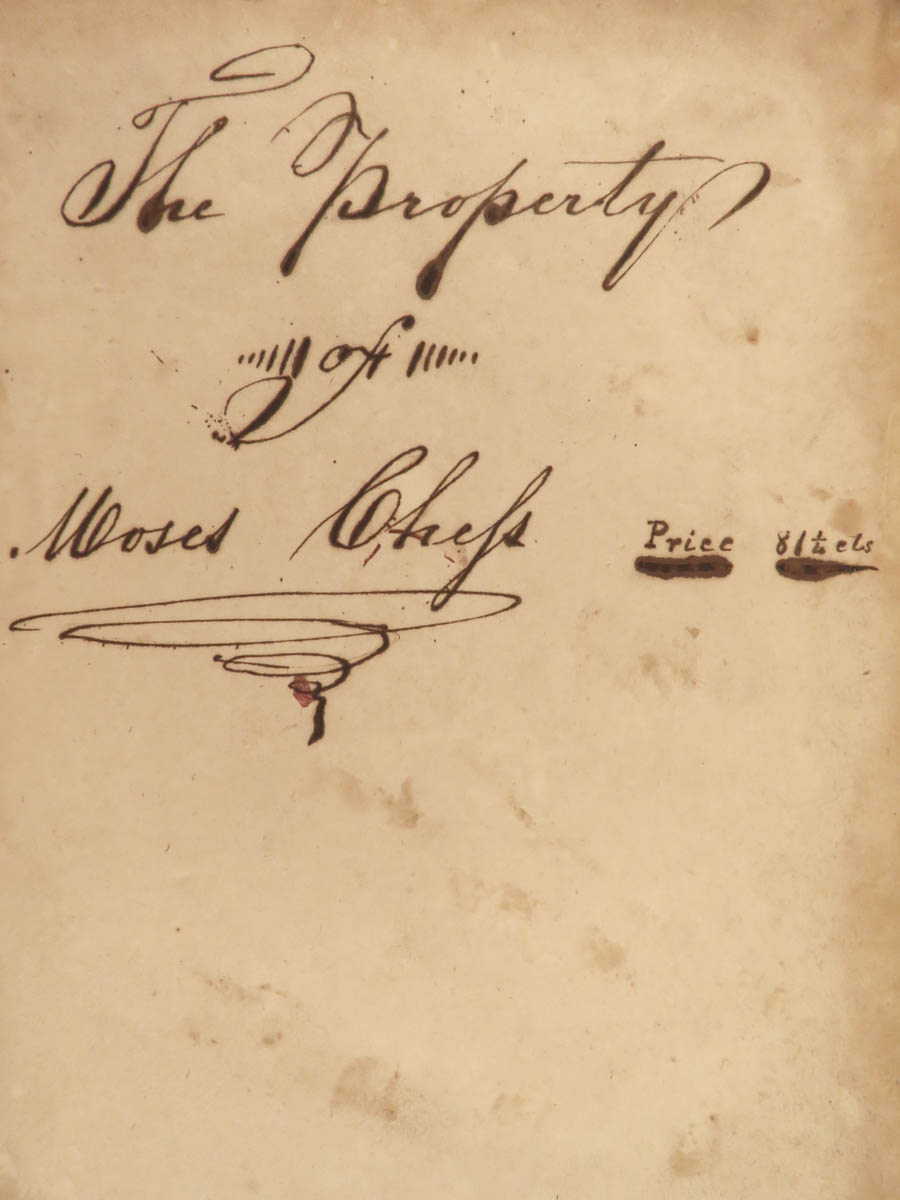 The Property
of
Moses Chess Price 81¼ cts